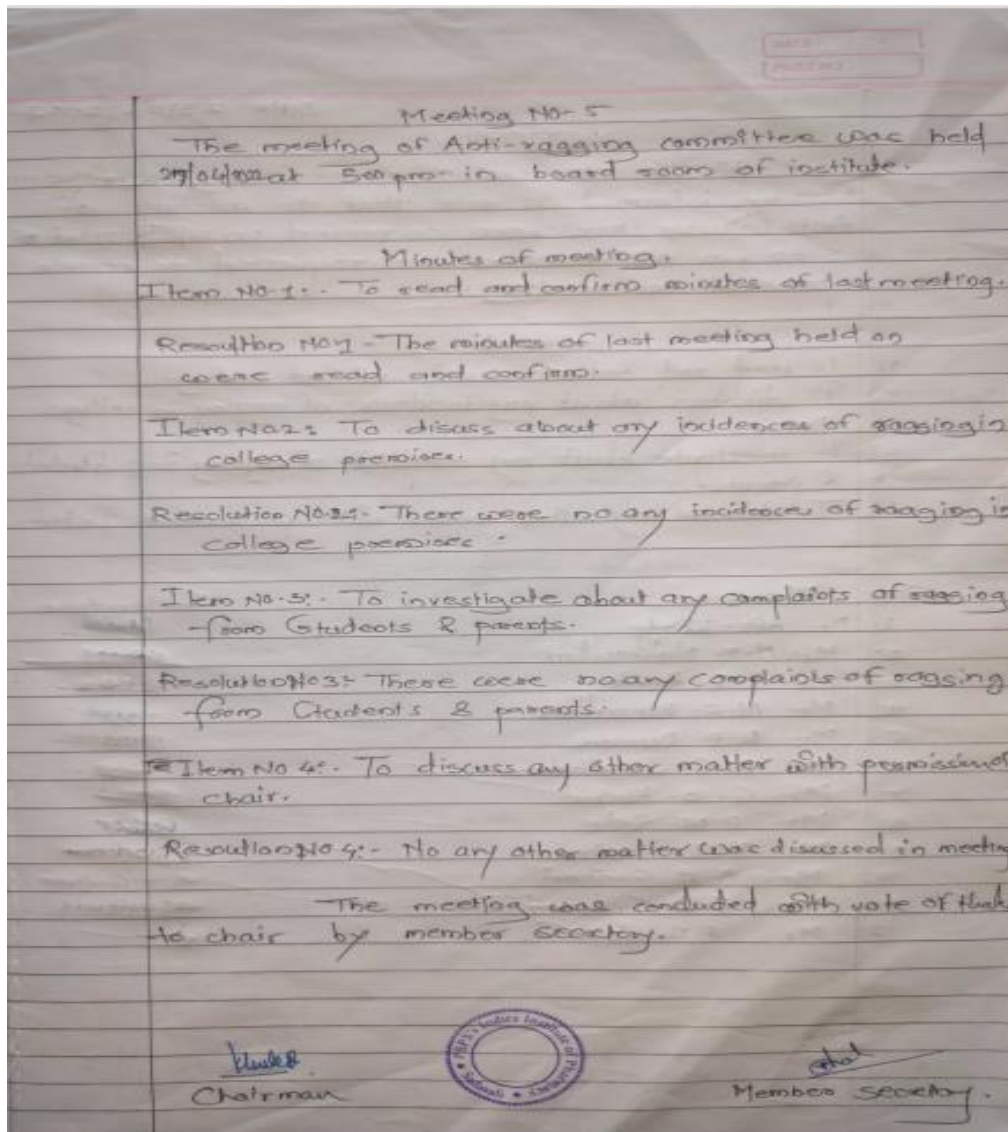 Meeting No-5
The meeting of Anti-ragging committee was held
at 5:00 pm in board room of institute.
Minutes of meeting.
Item No-1:- To read and confirm minutes of last meeting.
Resoultion No1 - The minutes of last meeting held on
were read and confirm.
Item No2: To disass about any incidences of ragging in
college premises.
Resolution No.2:- There were no any incidences of ragging in
college premises.
Item No-3:- To investigate about any complaints of ragging
from Students & parents.
Resolution No3:- There were no any complaints of ragging
from Students & parents.
Item No 4:- To discuss any other matter with permission of
chair.
Resoultion No 4:- No any other matter was discussed in meeting
The meeting was conducted with vote of thank
to chair by member secretary.
Institute of Pharmacy
Chairman
Member secretary.